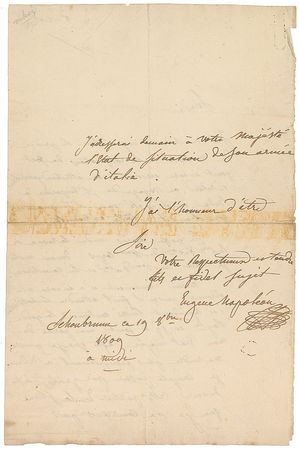 J'adresserai demain à Votre Majesté
l'Etat de Situation de son armée
d'italie.
J'ai l'honneur d'être
Sire
Votre Respectueux et tendre
fils et fidel Sujet
Eugene Napoléon
Schonbrunn ce 19 8bre
1809
à midi